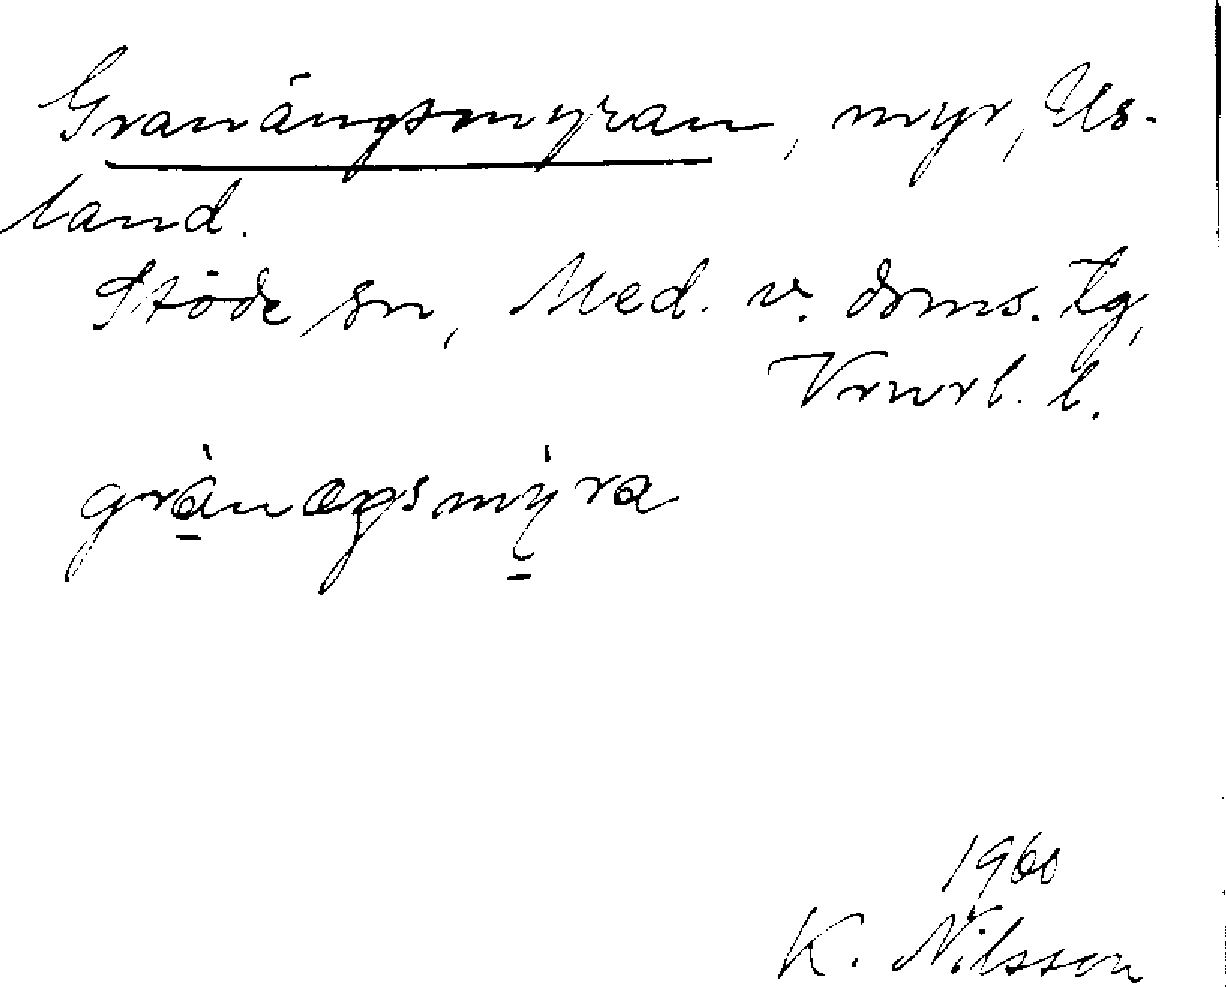 Granängsmyran, myr, Us-
land.
Stöde sn, Med. v. doms. tg,
Vrnrl. l.
grànægsmỳra
1960
K. Nilsson